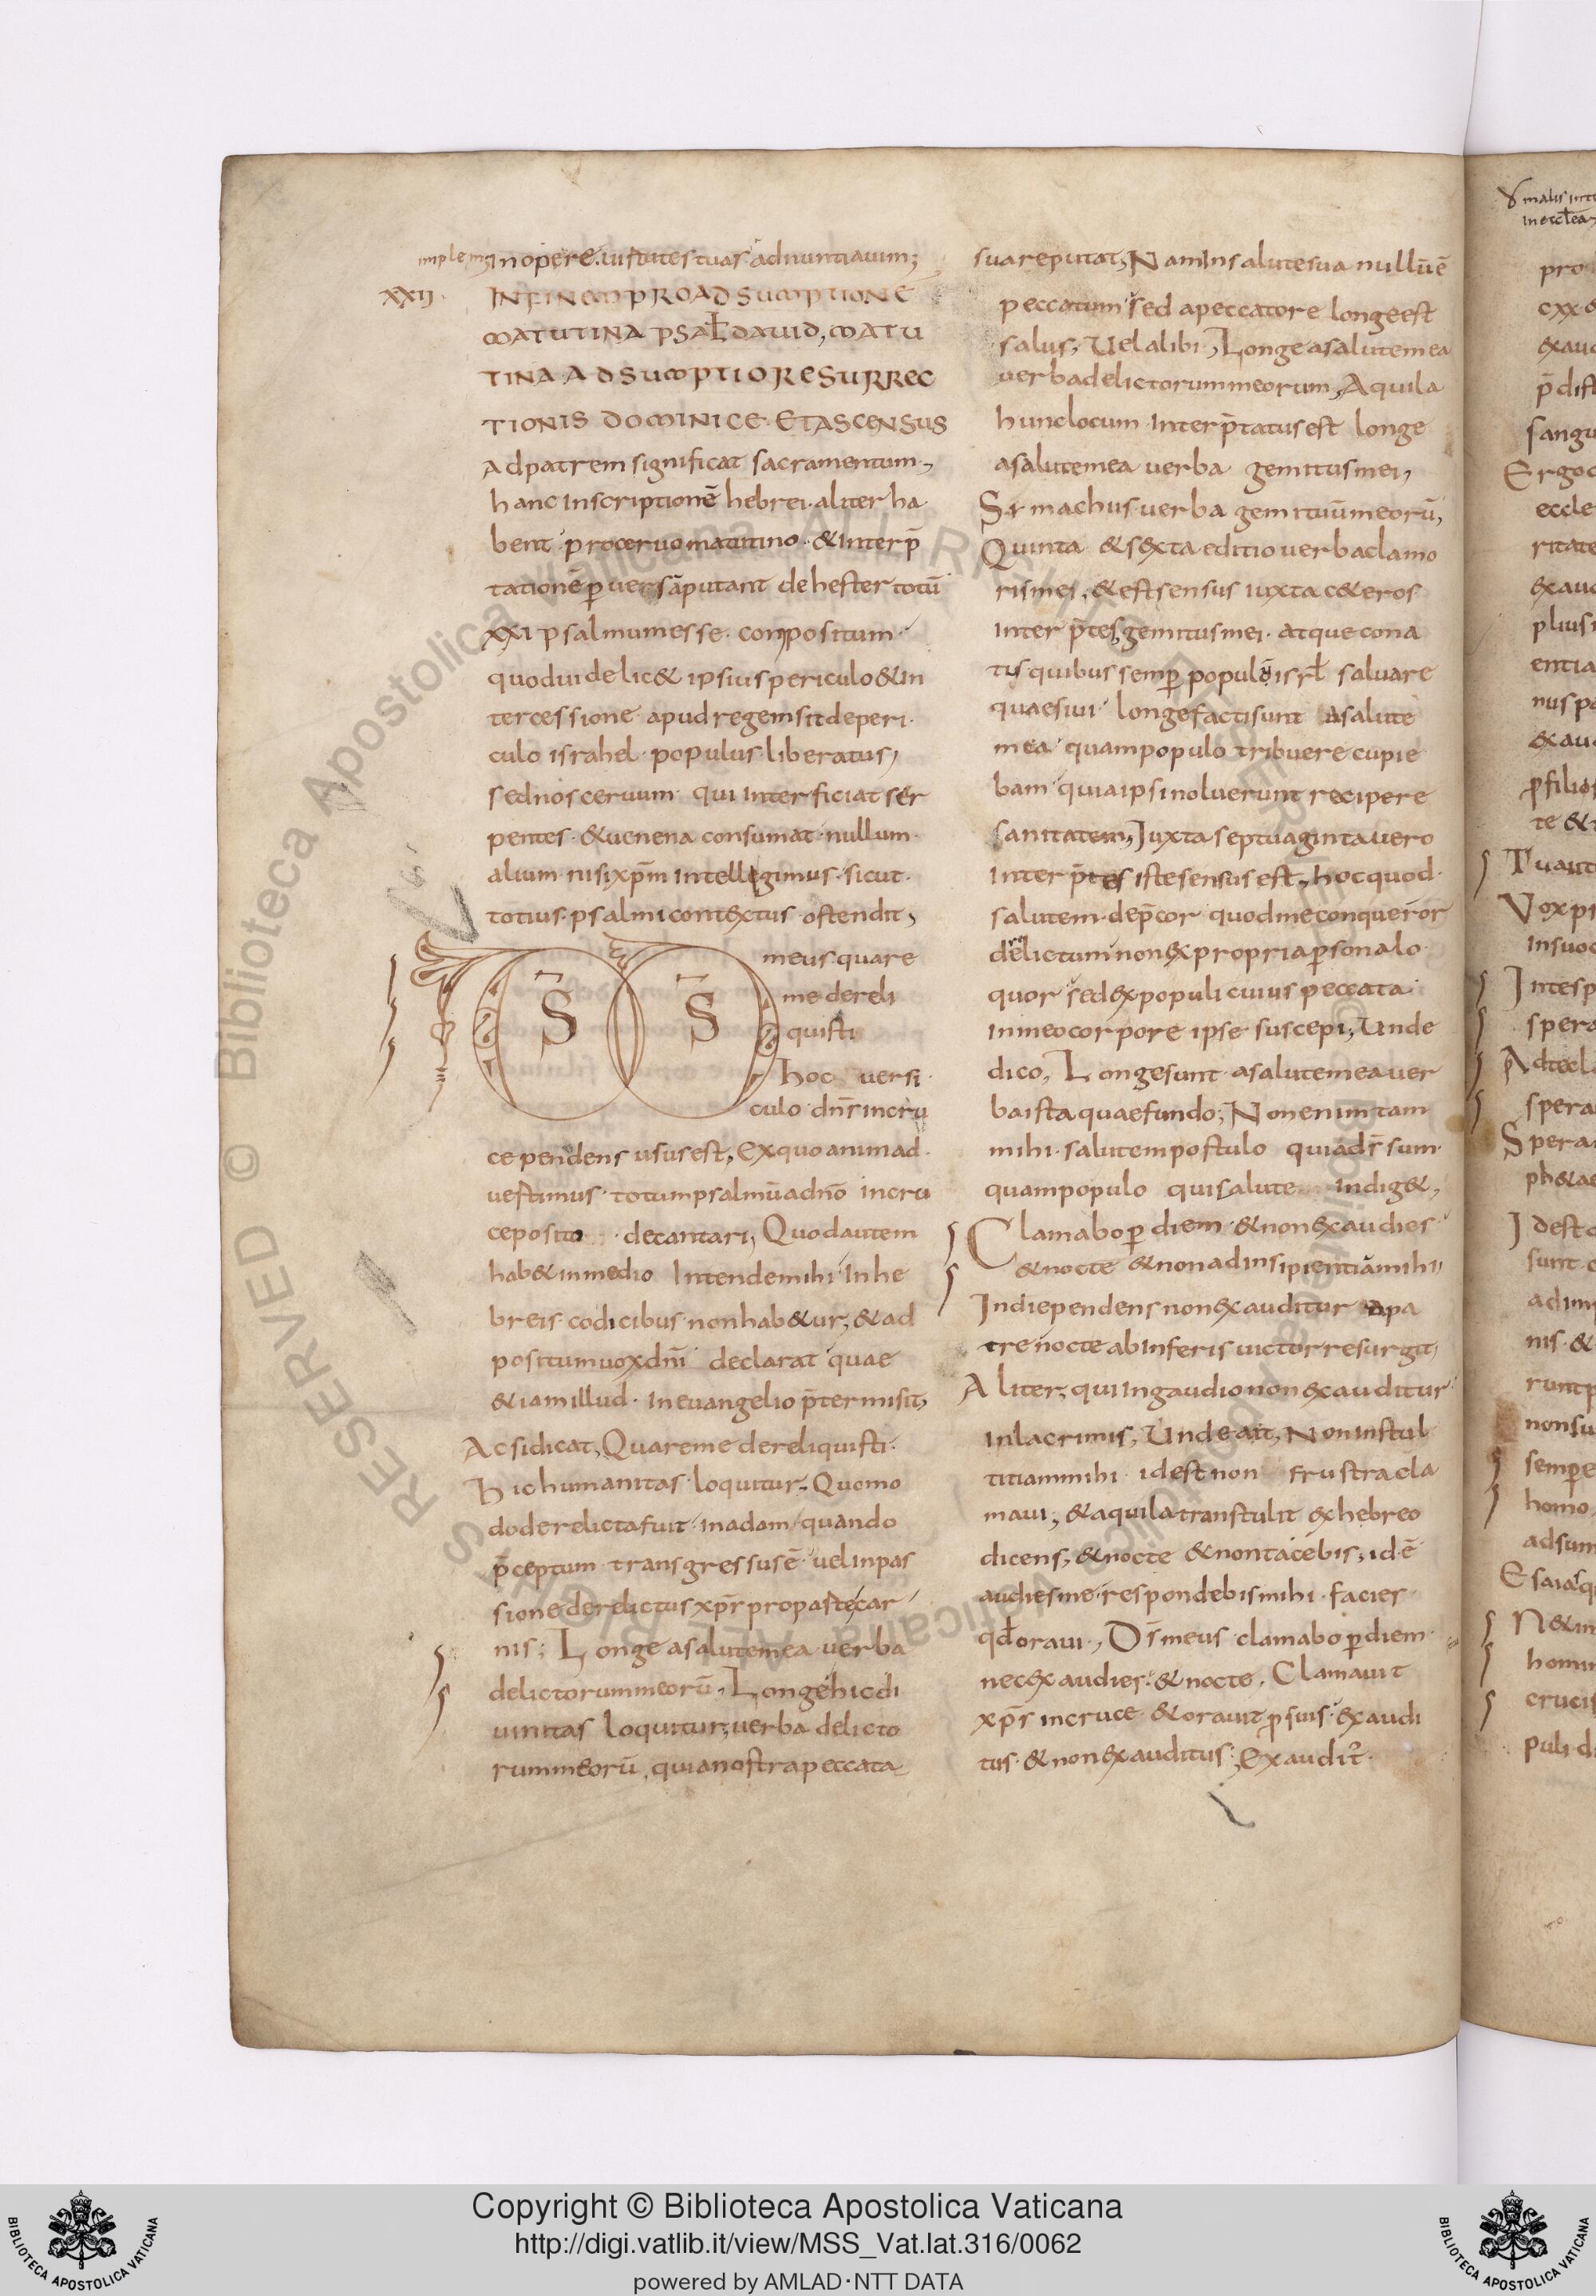 implem inopere. uirtutes tuas adnuntiauim;
XXII. INFINEM PROADSUMPTIONE
MATUTINA PSAŁ DAUID, MATU
TINA ADSUMPTIO RESURREC
TIONIS DOMINICE ET ASCENSUS
ad patrem significat sacramentum,
hanc inscriptionē hebrei aliter ha
bent pro ceruo matutino & interp̄
tationē ꝑuersā putant de hester totū
XXI psalmum esse compositum
quod uidelic& ipsius periculo & in
tercessione apud regem sit de peri
culo israhel populus liberatus,
sed nos ceruum qui interficiat ser
pentes & uenena consumat nullum
alium nisi xp̄m intellegimus sicut
totius psalmi contextus ostendit,
D̄S D̄S meus quare
me dereli
quisti
hoc uersi
culo dn̄s incru
ce pendens usus est, Ex quo animad
uestimus totum psalmū ad dno incru
ce posito decantari, Quod autem
hab& in medio Intende mihi in he
breis codicibus non hab&ur, & ad
positum uox dn̄i declarat quae
& iam illud in euangelio p̄termisit,
Ac si dicat, Quare me dereliquisti
Hic humanitas loquitur. Quomo
do derelicta fuit in adam quando
p̄ceptum transgressus ē uel in pas
sione derelictus xp̄s propaste car
nis; Longe a salute mea uerba
delictorum meorū, Longe hic di
uinitas loquitur; uerba delicto
rum meorū, quia nostra peccata
sua reputat, Nam in salute sua nullū ē
peccatum sed a peccatore longe est
salus, Uel alibi, Longe a salute mea
uerba delictorum meorum, Aquila
hunc locum interp̄tatus est longe
a salute mea uerba gemitus mei,
Symachus uerba gemituū meorū,
Quinta & sexta editio uerba clamo
ris mei, & est sensus iuxta c&eros
interp̄tes, gemitus mei atque cona
tus quibus semꝑ populū isrł saluare
quaesiui longe facti sunt a salute
mea quam populo tribuere cupie
bam quia ipsi noluerunt recipere
sanitatem, Iuxta septuaginta uero
interp̄tes iste sensus est, hoc quod
salutem dep̄cor quod me conqueror
derelictum non ex propria ꝑsona lo
quor sed ex populi cuius peccata
in meo corpore ipse suscepi, Unde
dico, Longe sunt a salute mea uer
ba ista quae fundo; Non enim tam
mihi salutem postulo qui ad s̄ sum
quam populo qui salute indig&,
Clamabo ꝑ diem & non exaudies
& nocte & non ad insipientiā mihi,
In die pendens non exauditur a pa
tre nocte ab inferis uictor resurgit,
Aliter, qui in gaudio non exauditur
in lacrimis, Unde ait, Non in stul
titiam mihi id est non frustra cla
maui, & aquila transtulit ex hebreo
dicens, & nocte & non tacebis, id ē
audies me respondebis mihi facies
qđ oraui, D̄s meus clamabo ꝑ diem
nec exaudies & nocte. Clamauit
xp̄s in cruce & orauit ꝓ suis exaudi
tus & non exauditus; Exaudit᷑
Copyright © Biblioteca Apostolica Vaticana
http://digi.vatlib.it/view/MSS_Vat.lat.316/0062
powered by AMLAD·NTT DATA